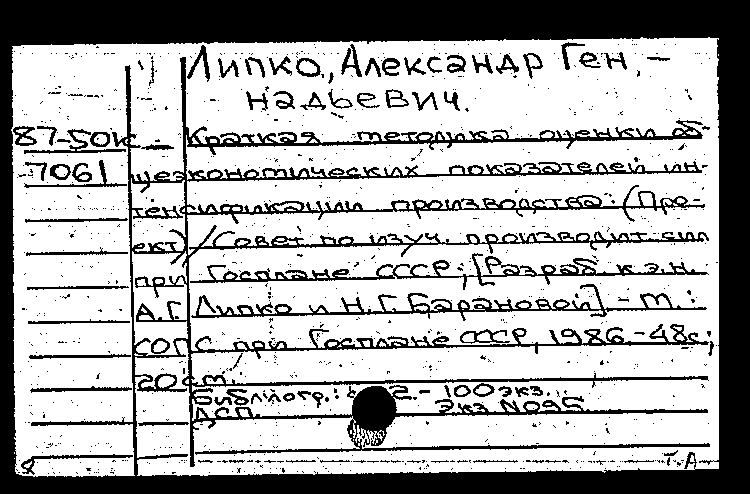 Липко, Александр Ген-
надьевич.
87-50к - Краткая методика оценки об-
7061 щеэкономических показателей ин-
тенсификации производства: (Про-
ект) / Совет по изуч. производит. сил
при Госплане СССР; [Разраб. к.э.н.
А.Г. Липко и Н.Г. Барановой] - М.:
СОПС при Госплане СССР, 1986. - 48с;
20 см.
Библиогр.: 2. - 100 экз.
ДСП. Экз. N095
Т.А